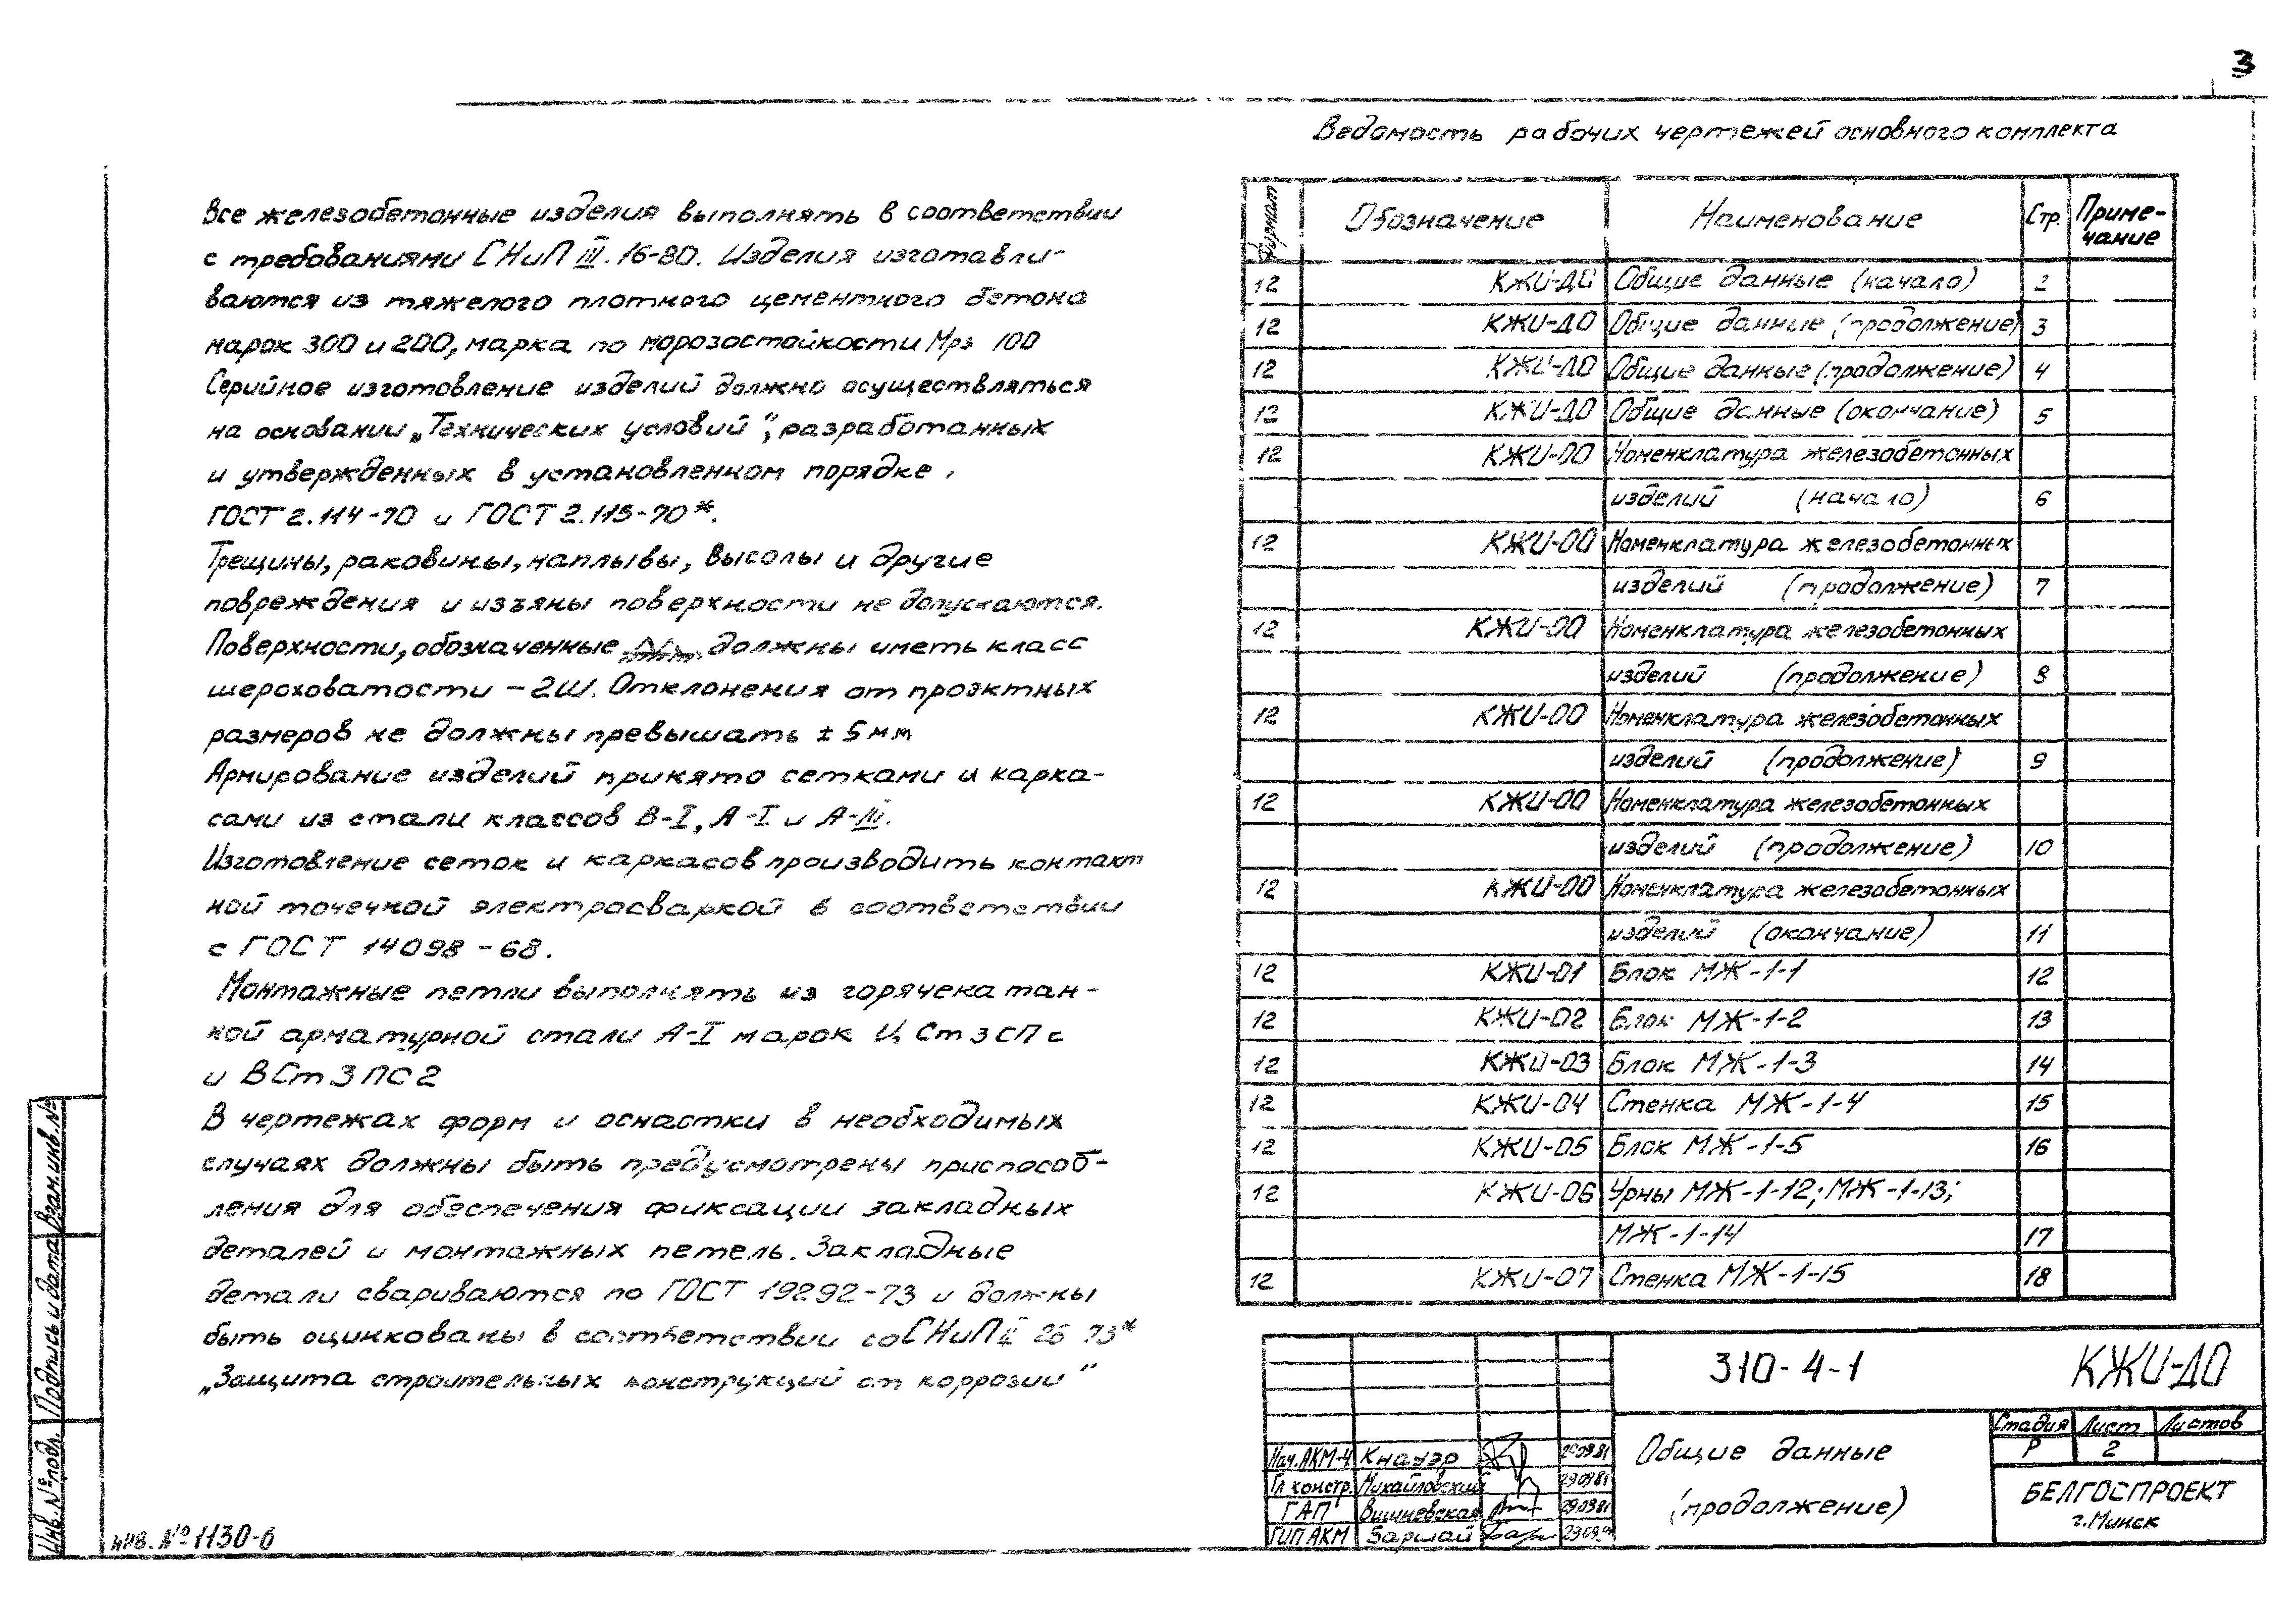 3
Все железобетонные изделия выполнять в соответствии
с требованиями СНиП III.16-80. Изделия изготавли-
ваются из тяжелого плотного цементного бетона
марок 300 и 200, марка по морозостойкости Мрз 100
Серийное изготовление изделий должно осуществляться
на основании „Технических условий“, разработанных
и утвержденных в установленном порядке,
ГОСТ 2.114-70 и ГОСТ 2.115-70*.
Трещины, раковины, наплывы, высолы и другие
повреждения и изъяны поверхности не допускаются.
Поверхности, обозначенные должны иметь класс
шероховатости – 2Ш. Отклонения от проэктных
размеров не должны превышать ± 5 мм
Армирование изделий принято сетками и карка-
сами из стали классов В-I, А-I и А-III.
Изготовление сеток и каркасов производить контакт
ной точечной электросваркой в соответствии
с ГОСТ 14098-68.
Монтажные петли выполнять из горячекатан-
ной арматурной стали А-I марок Ст 3 сп
и ВСт 3 ПС 2
В чертежах форм и оснастки в необходимых
случаях должны быть предусмотрены приспособ-
ления для обеспечения фиксации закладных
деталей и монтажных петель. Закладные
детали свариваются по ГОСТ 19292-73 и должны
быть оцинкованы в соответствии со СНиП II 28 73*
„Защита строительных конструкций от коррозии“
Ведомость рабочих чертежей основного комплекта
Формат Обозначение Наименование Стр. Приме-
чание
12 КЖИ-ДО Общие данные (начало) 2
12 КЖИ-ДО Общие данные (продолжение) 3
12 КЖИ-ДО Общие данные (продолжение) 4
12 КЖИ-ДО Общие данные (окончание) 5
12 КЖИ-00 Номенклатура железобетонных
изделий (начало) 6
12 КЖИ-00 Номенклатура железобетонных
изделий (продолжение) 7
12 КЖИ-00 Номенклатура железобетонных
изделий (продолжение) 8
12 КЖИ-00 Номенклатура железобетонных
изделий (продолжение) 9
12 КЖИ-00 Номенклатура железобетонных
изделий (продолжение) 10
12 КЖИ-00 Номенклатура железобетонных
изделий (окончание) 11
12 КЖИ-01 Блок МЖ-1-1 12
12 КЖИ-02 Блок МЖ-1-2 13
12 КЖИ-03 Блок МЖ-1-3 14
12 КЖИ-04 Стенка МЖ-1-4 15
12 КЖИ-05 Блок МЖ-1-5 16
12 КЖИ-06 Урны МЖ-1-12; МЖ-1-13;
МЖ-1-14 17
12 КЖИ-07 Стенка МЖ-1-15 18
310-4-1 КЖИ-ДО
Общие данные
(продолжение)
Стадия Лист Листов
Р 2
БЕЛГОСПРОЕКТ
г. Минск
Нач.АКМ-4 Кнауэр 29.09.81
Гл констр. Михайловский 29.09.81
ГАП Вишневская 29.09.81
ГИП АКМ Баршай 29.09.81
Взам.инв.№
Подпись и дата
Инв.№ подл.
инв. №1130-6